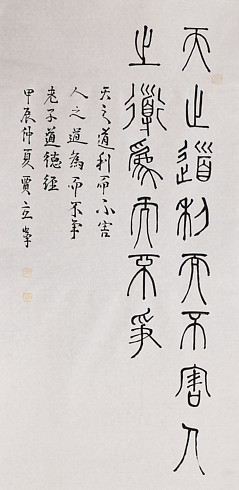 天之道利而不害人
之道為而不爭
天之道利而不害
人之道為而不爭
老子道德經
甲辰仲夏賈立